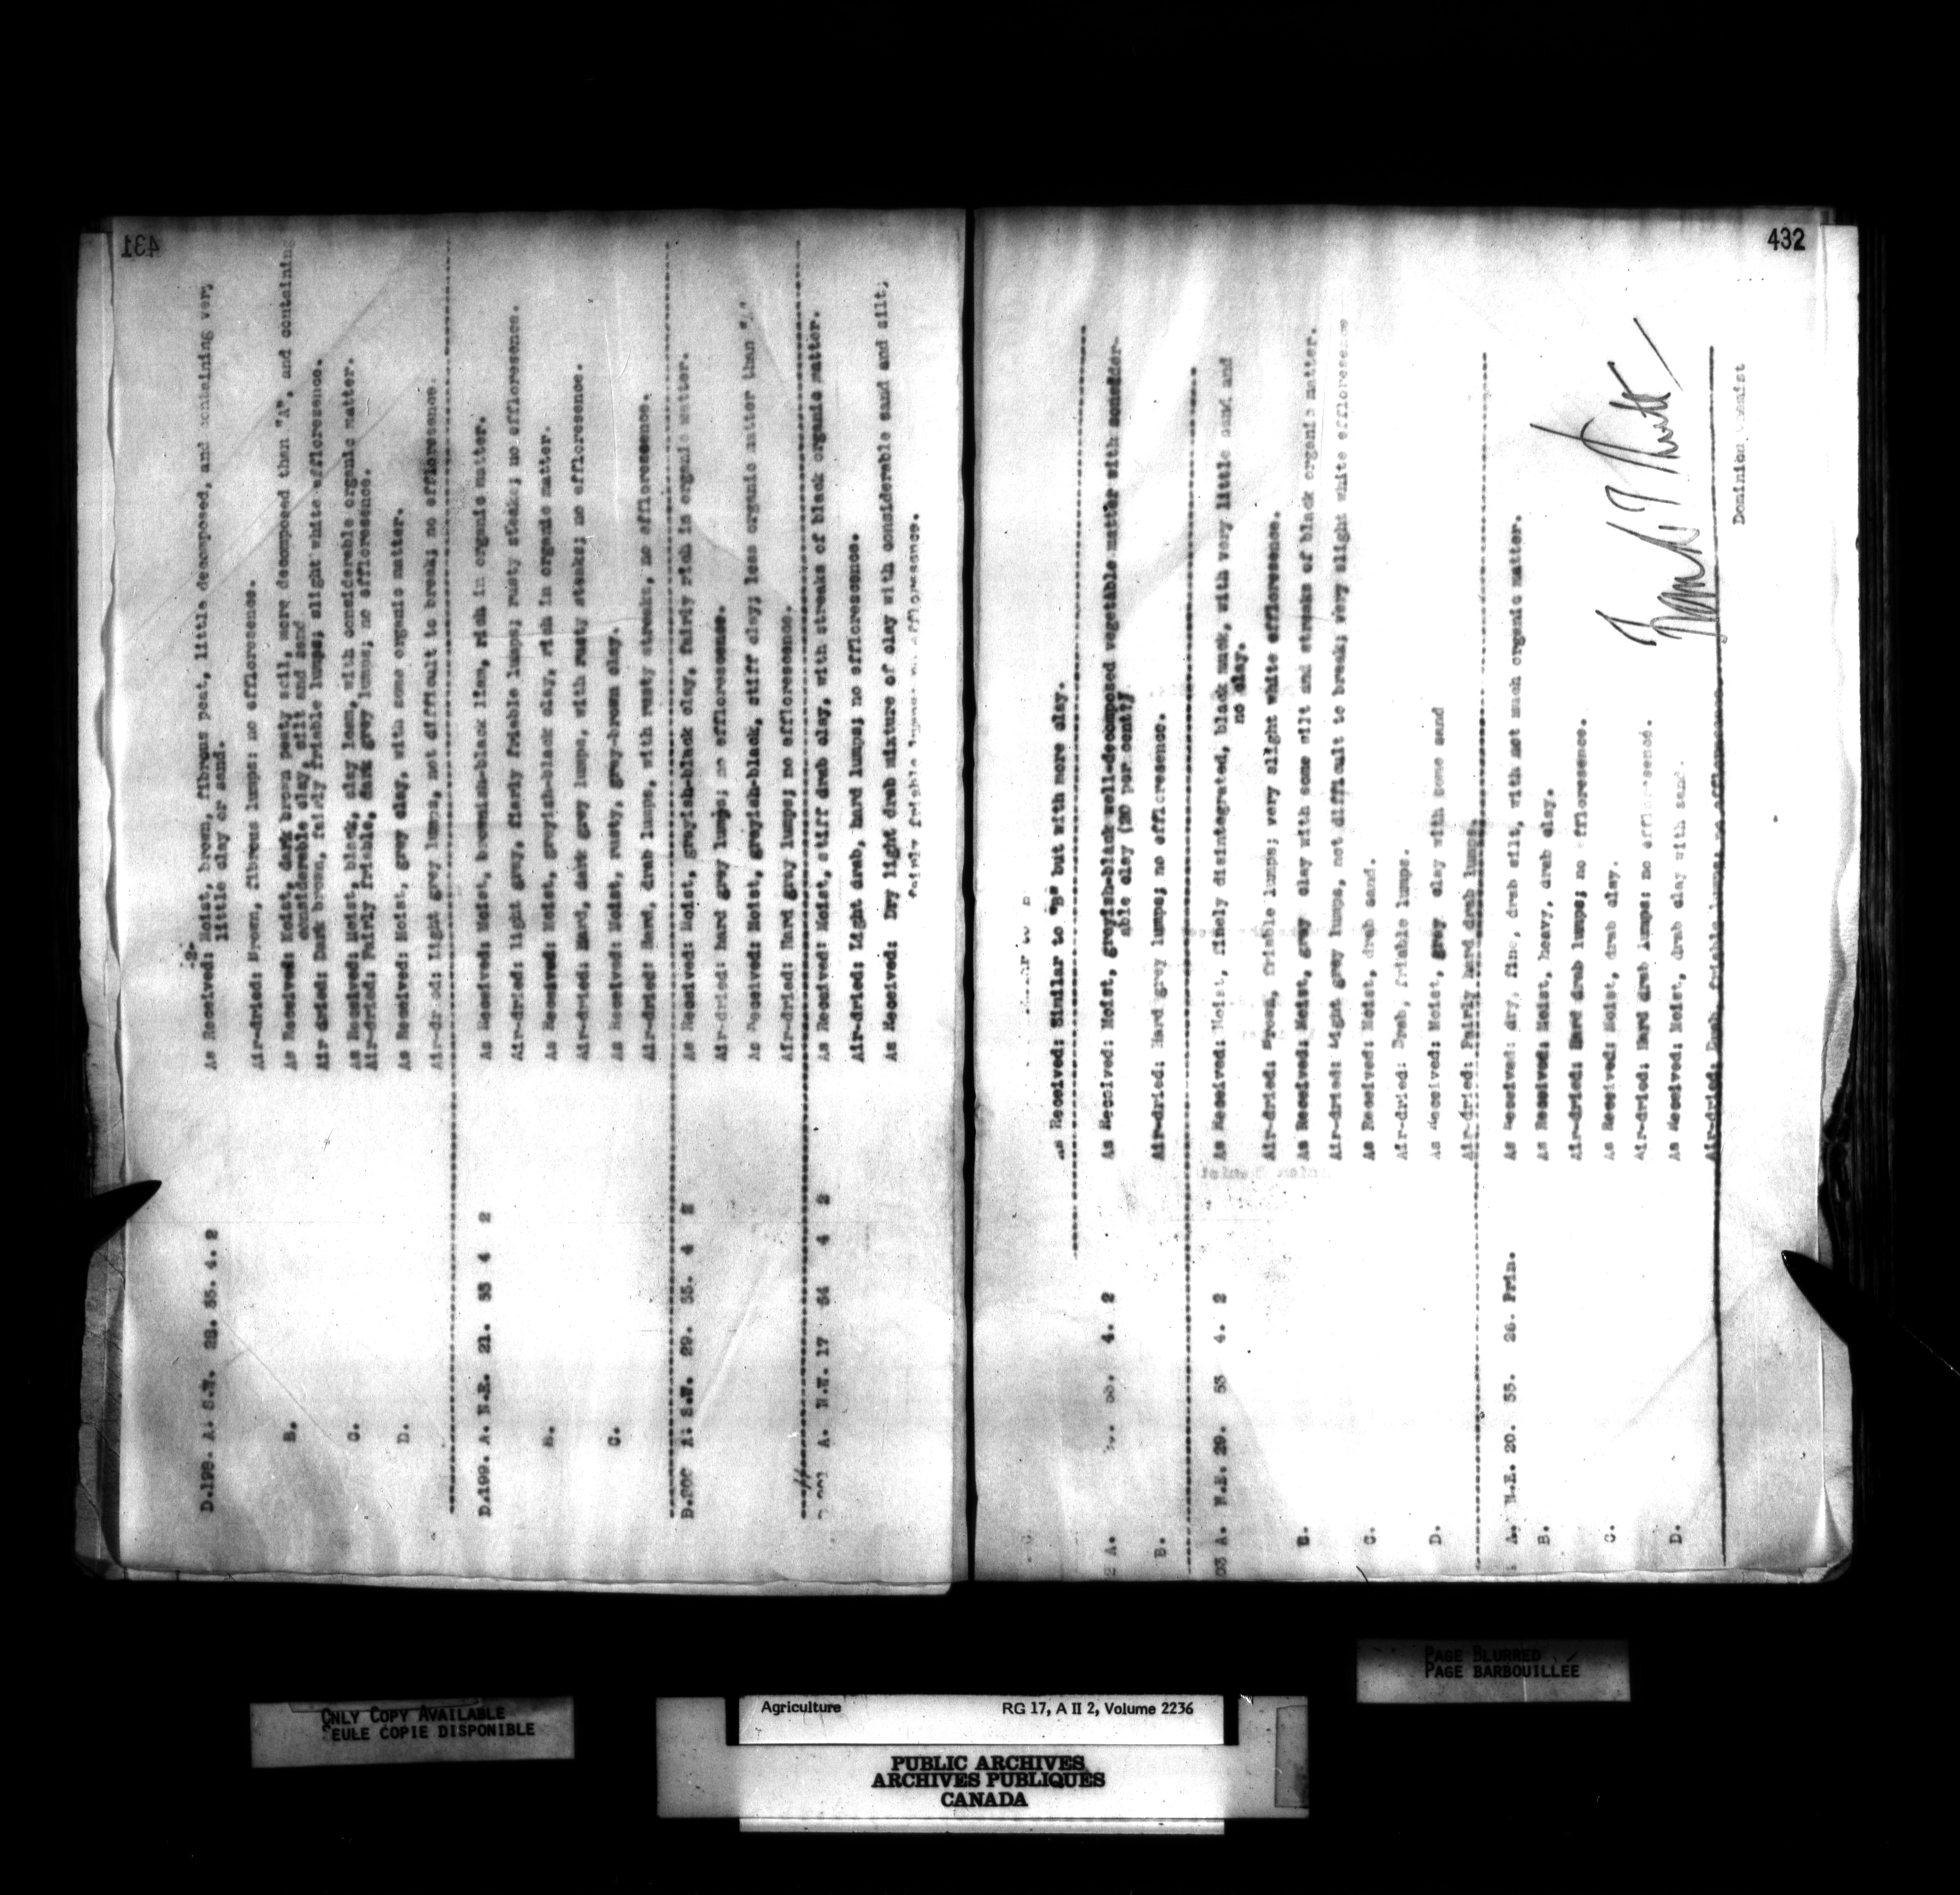 431
-2-
D.198. A. S.W. 28. 35. 4. 2 As Received: Moist, brown, fibrous peat, little decomposed, and containing very
little clay or sand.
Air-dried: Brown, fibrous lumps: no efflorescence.
B. As Received: Moist, dark brown peaty soil, more decomposed than "A", and containing
considerable clay, silt and sand
Air dried: Dark brown, fairly friable lumps; slight white efflorescence.
C. As Received: Moist, black, clay loam, with considerable organic matter.
Air-dried: Fairly friable, dark grey lumps; no efflorescence.
D. As Received: Moist, grey clay, with some organic matter.
Air-dried: Light grey lumps, not difficult to break; no efflorescence.
D.199. A. N.E. 21. 53 4 2 As Received: Moist, brownish-black, rich in organic matter.
Air-dried: light grey, fiarly friable lumps; rusty steaks; no efflorescence.
B. As Received: Moist, grayish-black clay, rich in organic matter.
Air-dried: Hard, dark grey lumps, with rusty steaks; no efflorescence.
C. As Received: Moist, rusty, gray-brown clay.
Air-dried: Hard, drab lumps, with rusty streaks, no efflorescence.
A: S.W. 29. 55. 4 2 As Received: Moist, grayish-black clay, fairly rich in organic matter.
Air-dried: hard grey lumps; no efflorescence.
As Received: Moist, grayish-black, stiff clay; less organic matter than "A"
Air-dried: Hard gray lumps; no efflorescence.
A. N.W. 17 54 4 2 As Received: Moist, stiff drab clay, with streaks of black organic matter.
Air-dried: Light drab, hard lumps; no efflorescence.
As Received: Dry light drab mixture of clay with considerable sand and silt;
fairly friable lumps no efflorescence.
432
As Received: Similar to "B" but with more clay.
2 A. 4. 2 As Received: Moist, greyish-black well-decomposed vegetable matter with consider-
able clay (20 per cent?)
B. Air-dried: Hard grey lumps; no efflorescence.
03 A. N.E. 29. 53 4. 2 As Received: Moist, finely disintegrated, black muck, with very little sand and
no clay.
Air-dried: Brown, friable lumps; very slight white efflorescence.
B. As Received: Moist, gray clay with some silt and streaks of black organic matter.
Air-dried: Light grey lumps, not difficult to break; very slight white efflorescence
C. As Received: Moist, drab sand.
Air-dried: Drab, friable lumps.
D. As Received: Moist, grey clay with some sand
Air-dried: Fairly hard drab lumps.
A. N.E. 20. 55. 26. Prin. As Received: dry, fine, drab silt, with not much organic matter.
B. As Received: Moist, heavy, drab clay.
Air-dried: Hard drab lumps; no efflorescence.
C. As Received: Moist, drab clay.
Air-dried: Hard drab lumps: no efflorescence.
D. As Received: Moist, drab clay with sand.
Air-dried: Drab, friable lumps; no efflorescence.
Frank T Shutt
Dominion Chemist
ONLY COPY AVAILABLE
SEULE COPIE DISPONIBLE
PAGE BLURRED
PAGE BARBOUILLEE
Agriculture RG 17, A II 2, Volume 2236
PUBLIC ARCHIVES
ARCHIVES PUBLIQUES
CANADA